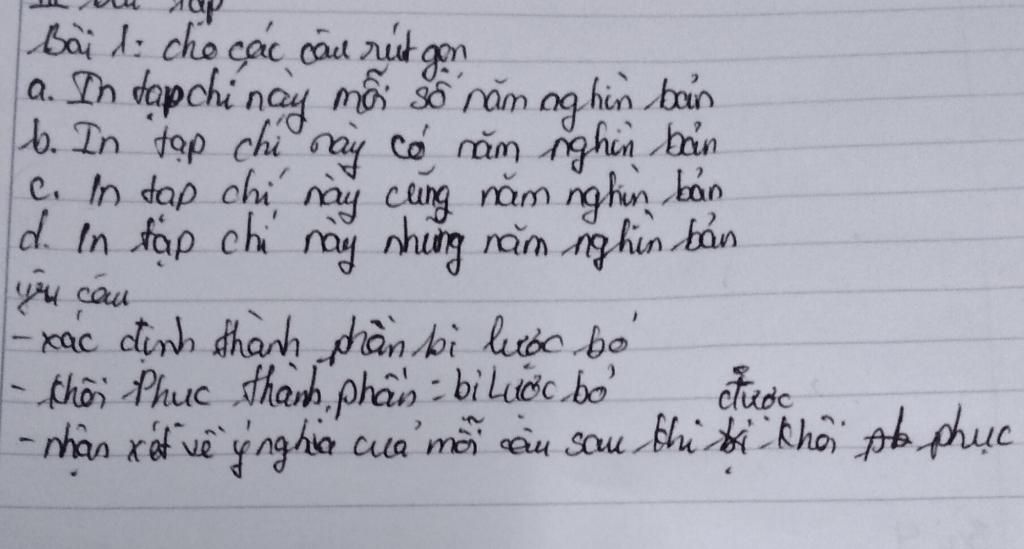 III Bài tập
Bài 1: cho các câu rút gọn
a. In tạp chí này mỗi số năm nghìn bản
b. In tạp chí này có năm nghìn bản
c. In tạp chí này cũng năm nghìn bản
d. In tạp chí này những năm nghìn bản
yêu cầu
- xác định thành phần bị lược bỏ
- khôi Phục thành phần bị lược bỏ
được
- nhận xét về ý nghĩa của mỗi câu sau khi bị khôi phục